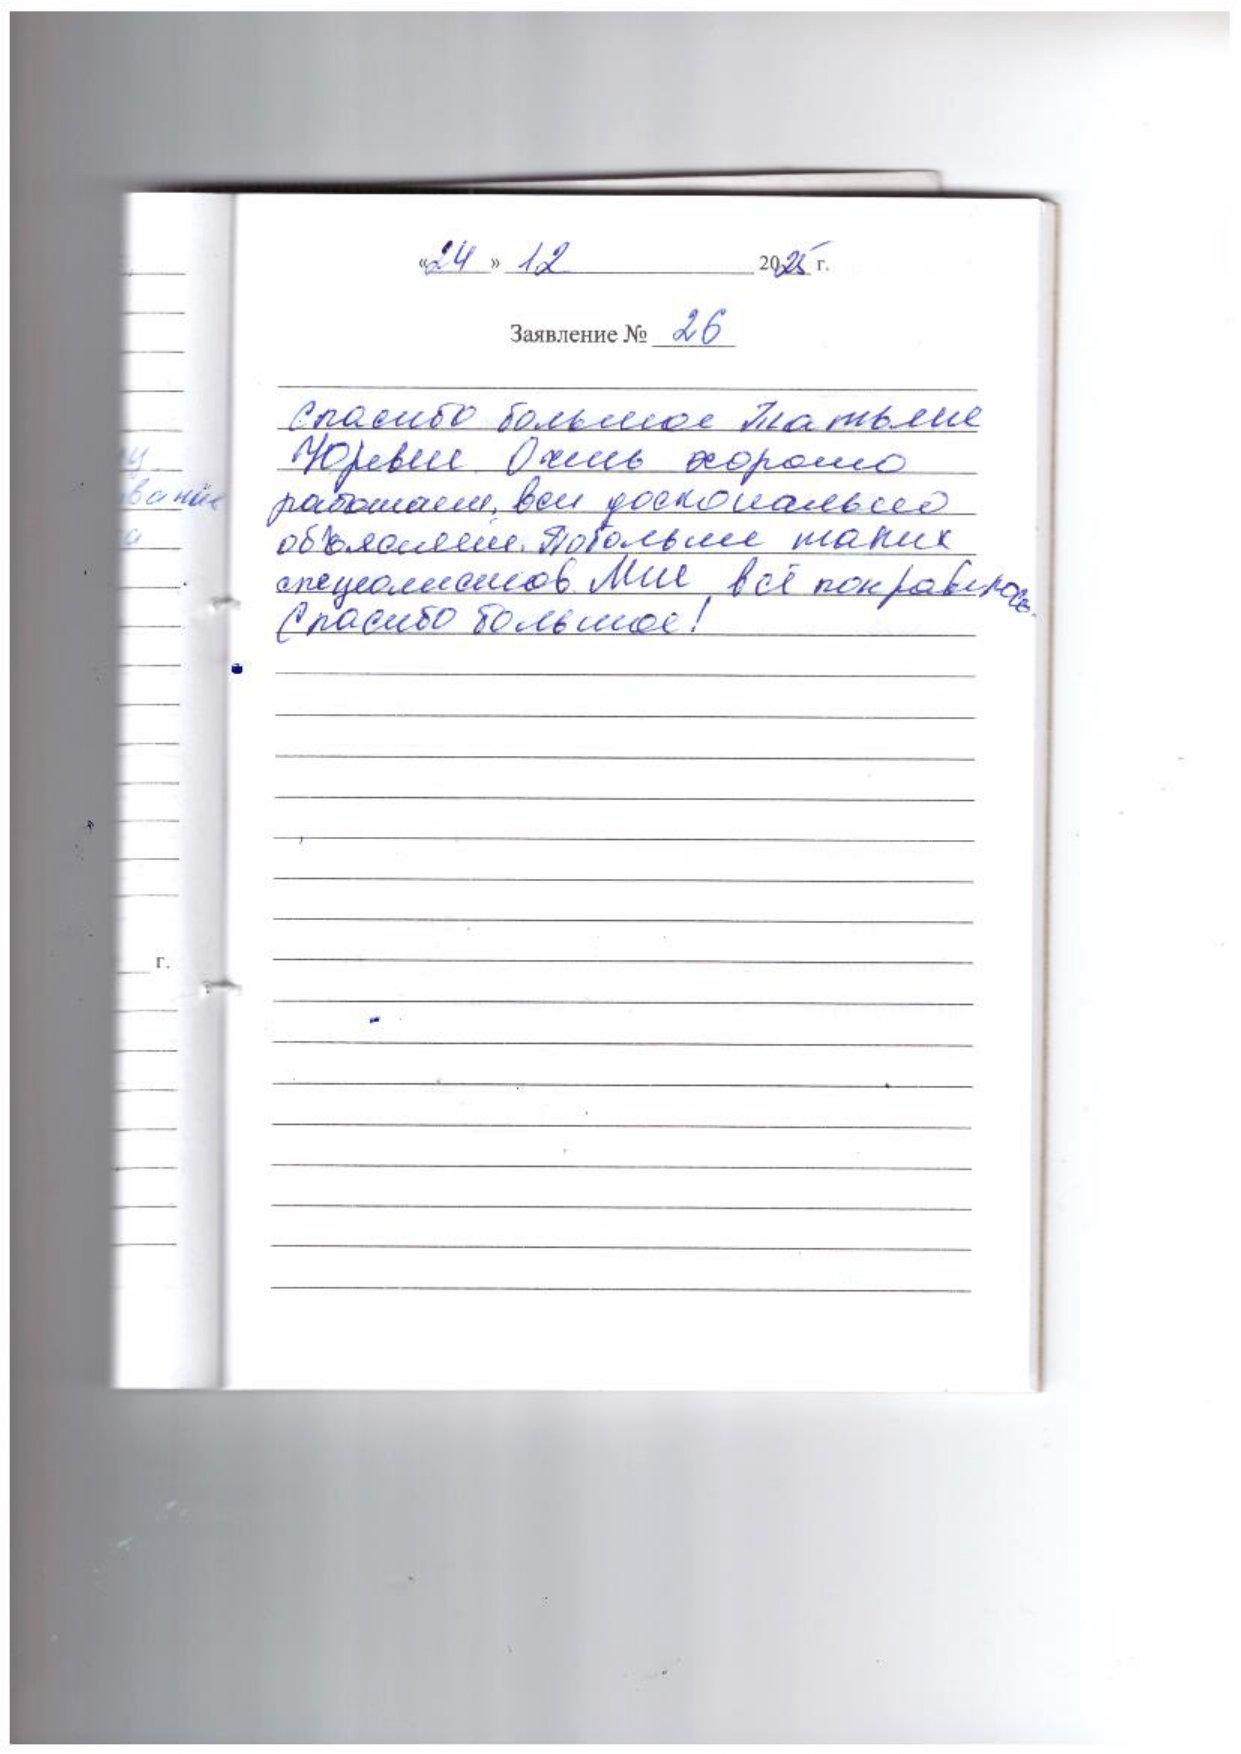 «24» 12 2025 г.
Заявление № 26
Спасибо большое Татьяне
Юрьевне. Очень хорошо
работает, все доскональльно
объясняет. Побольше таких
специалистов. Мне всё понравилось.
Спасибо большое!
вание
г.